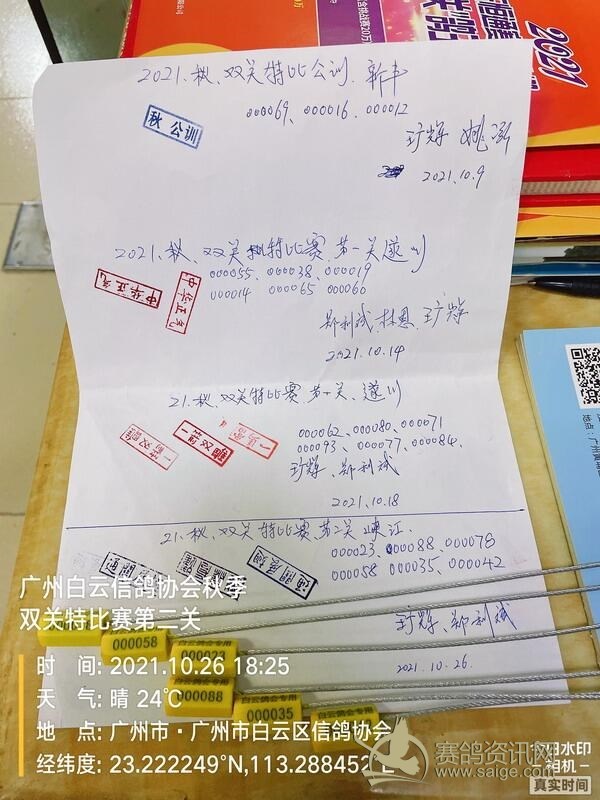 2021
2021.秋.双关特比公训.新丰
000069、000016、000012
秋公训
2021.10.9
2021.秋.双关特比赛.第一关遂川
000055、000038、000019
000014 000065 000060
中华正气
中华正气
郑利斌.林恩.
2021.10.14
21.秋.双关特比赛.第一关、遂川
000062、000080、000071
000093、000077、000084
郑利斌
2021.10.18
21.秋、双关特比赛.第二关 峡江.
000023、000088、000078
000058 000035、000042
郑利斌
2021.10.26.
广州白云信鸽协会秋季
双关特比赛第二关
时 间: 2021.10.26 18:25
天 气: 晴 24℃
地 点: 广州市·广州市白云区信鸽协会
经纬度: 23.222249°N,113.288452°E
000058
000023
白云鸽会专用
000088
白云鸽会专用
000035
赛鸽资讯网
www.saige.com
今日水印
相机
真实时间